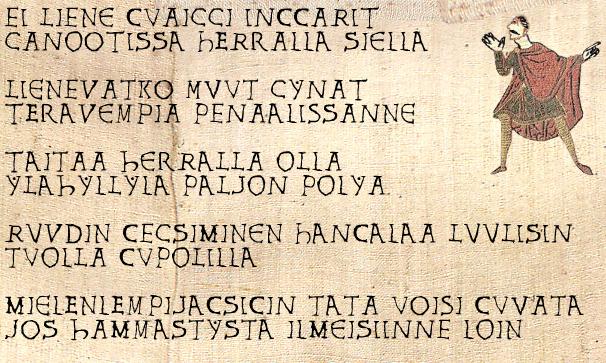 EI LIENE CVAICCI INCCARIT
CANOOTISSA hERRALLA SIELLA
LIENEVATKO MVVT CYNAT
TERAVEMPIA PENAALISSANNE
TAITAA hERRALLA OLLA
YLAhYLLYLA PALJON POLYA
RVVDIN CECSIMINEN hANCALAA LVVLISIN
TVOLLA CVPOLILLA
MIELENLEMPIJACSICIN TATA VOISI CVVATA
JOS hAMMASTYSTA ILMEISIINNE LOIN